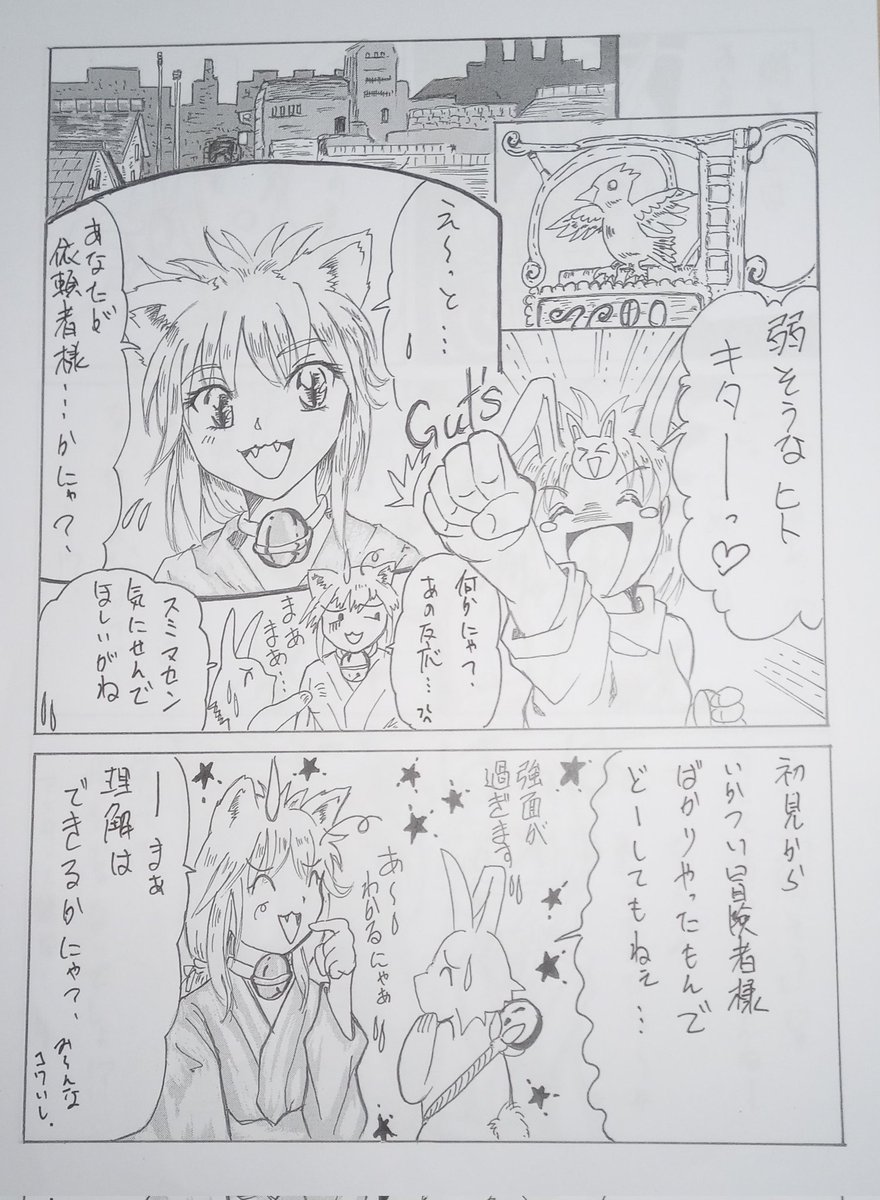 弱そうな ヒト
キターーっ♡
Gut's
え〜っと…
あなたが
依頼者様…かにゃ?
何かにゃ?
あの反応…
まぁ
まぁ…
スミマセン
気にせんで
ほしいがね
初見から
いかつい冒険者様
ばかりやったもんで
どーしてもねぇ…
強面が
過ぎます
あ〜
わかるにゃぁ
ーまぁ
理解は
できるかにゃ?
み〜んな
コワいし.